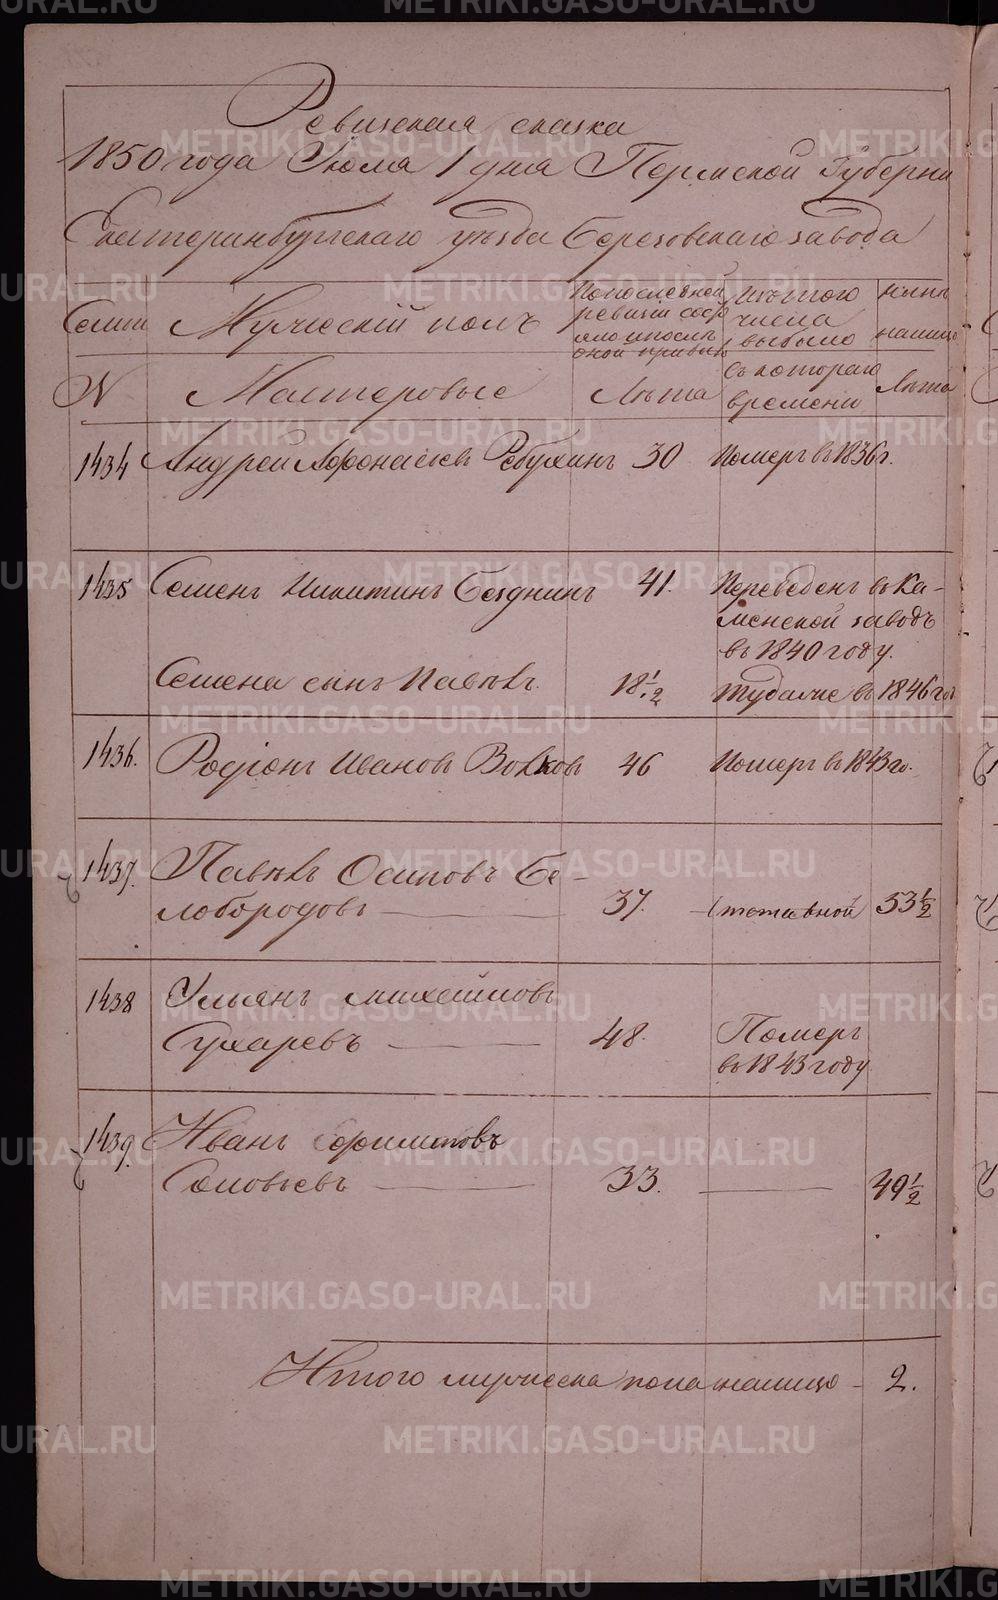 Ревизская сказка
1850 года Июля 1 дня Пермской Губерни
Екатеринбургскаго уезда Березовскаго завода
Семьи
Мужескій полъ
По последней
ревизіи сос
и после
оной прибыло
Изъ того
числа
выбыло
ныне
налицо
N
Мастеровые
Лета
Съ котораго
времени
Лета
1434 Андрей Афонасьевъ Ребухинъ 30 Померъ въ 1836 г.
1435 Семенъ Никитинъ Безднинъ 41. Переведенъ въ Ка-
менской заводъ
въ 1840 году.
Семена сынъ Павелъ 18 1/2 въ 1846 го
1436. Родіонъ Ивановъ Волковъ 46 Померъ въ 1843 го.
1437. Павелъ Осиповъ Бе-
лобородовъ 37. 53 1/2
1438 Ульянъ Михейловъ
Сухаревъ 48. Померъ
въ 1843 году
1439. Иванъ
Соловьевъ 33. 49 1/2
Итого мужеска пола налицо - 2.
METRIKI.GASO-URAL.RU